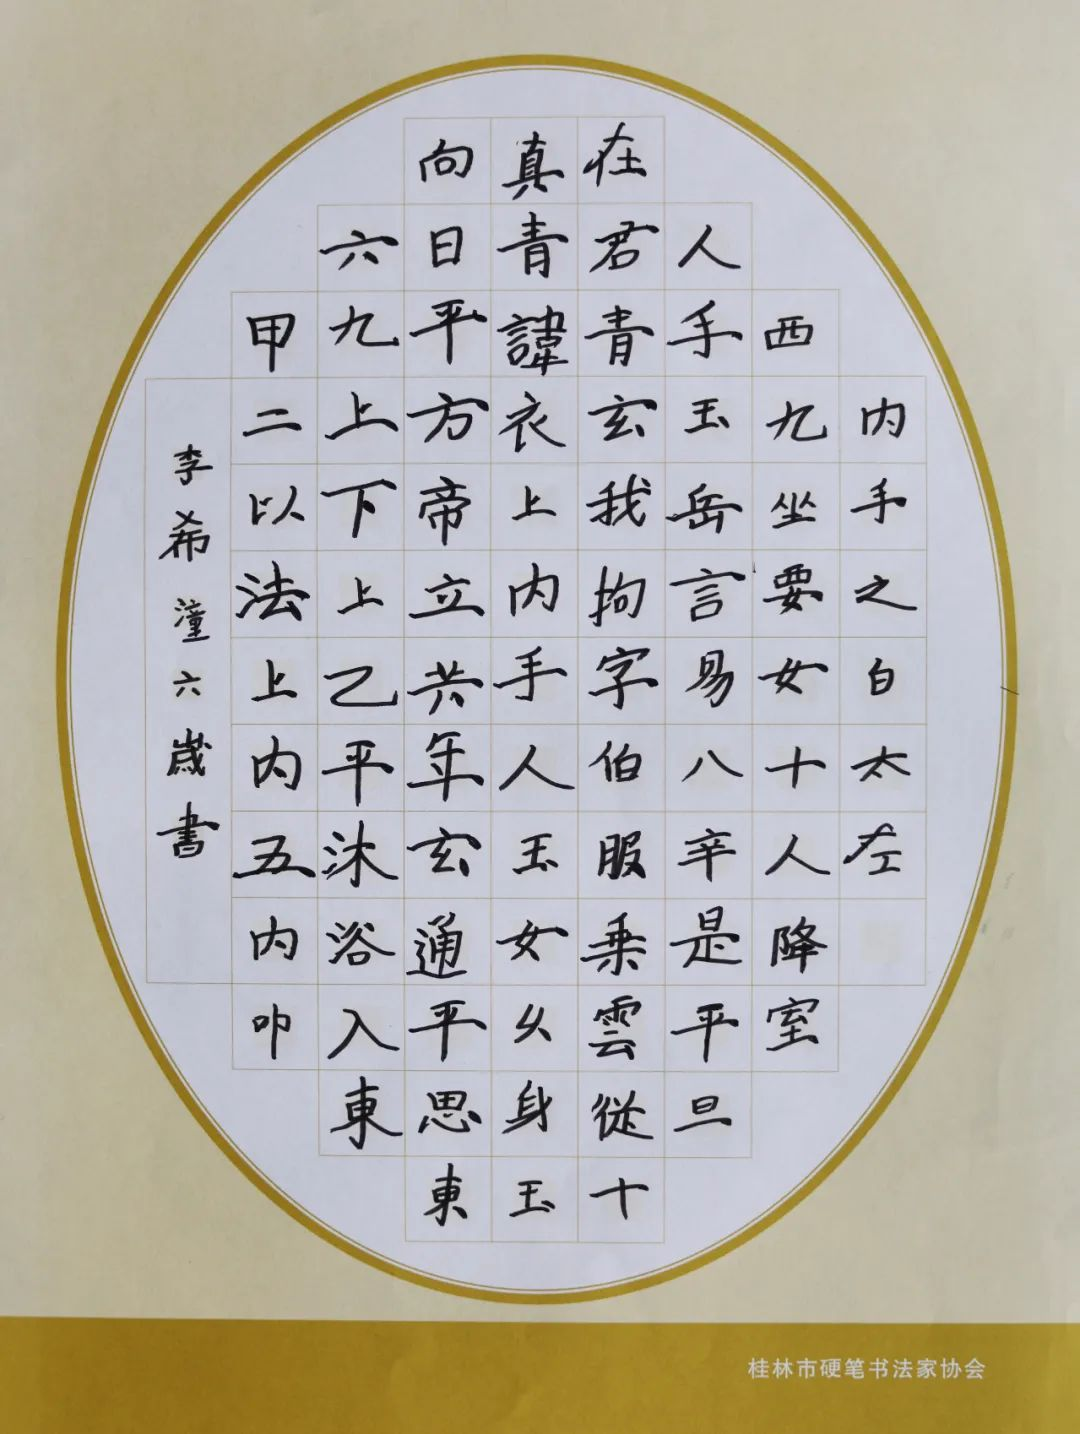 内手之白太左
西九坐要女十人降室
人手玉岳言易八辛是平旦
在君青玄我拘字伯服乘雲從十
真青諱衣上内手人玉女幺身玉
向日平方帝立共年玄通平思東
六九上下上乙平沐浴入東
甲二以法上内五内叩
李希潼六歲書
桂林市硬笔书法家协会